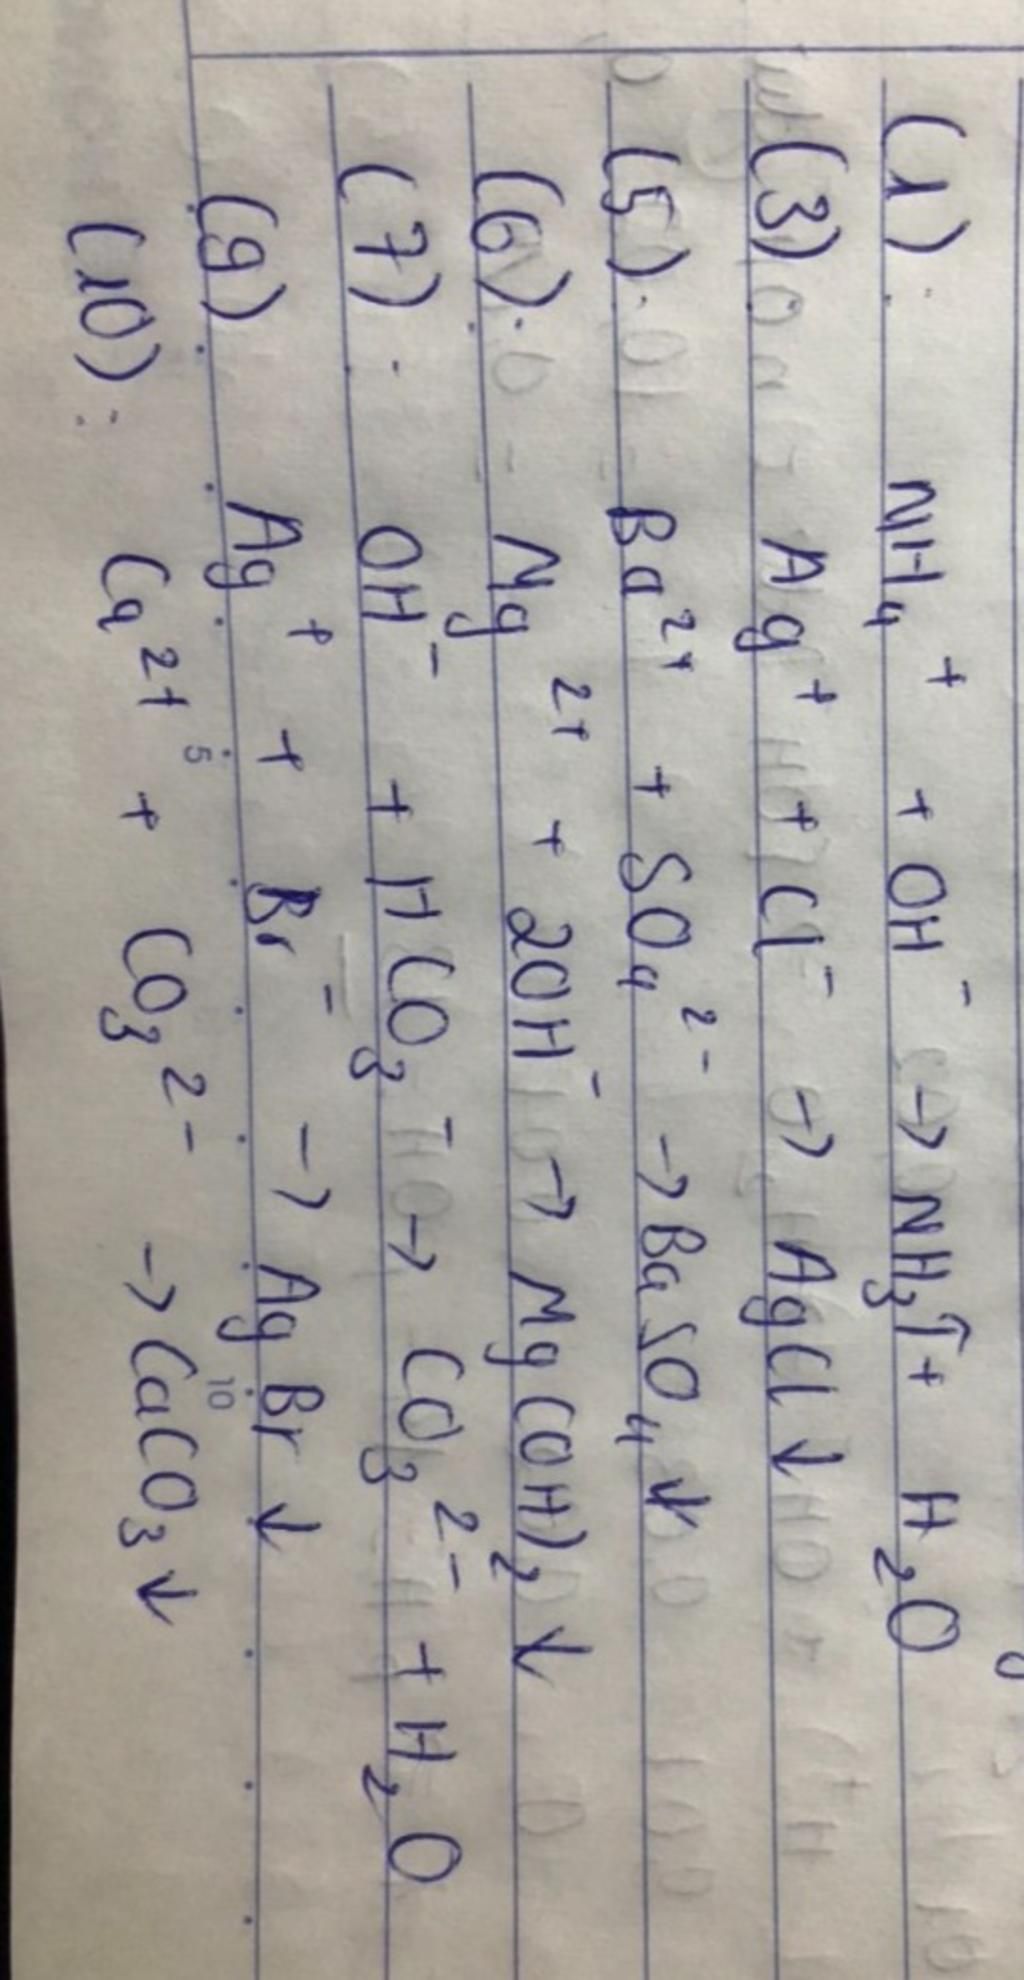 (1): NH₄⁺ + OH⁻ → NH₃↑ + H₂O
(3) Ag⁺ + Cl⁻ → AgCl↓
(5). Ba²⁺ + SO₄²⁻ → BaSO₄↓
(6). Mg²⁺ + 2OH⁻ → Mg(OH)₂↓
(7). OH⁻ + HCO₃⁻ → CO₃²⁻ + H₂O
(9) Ag⁺ + Br⁻ → AgBr↓
(10): Ca²⁺ + CO₃²⁻ → CaCO₃↓
5 10